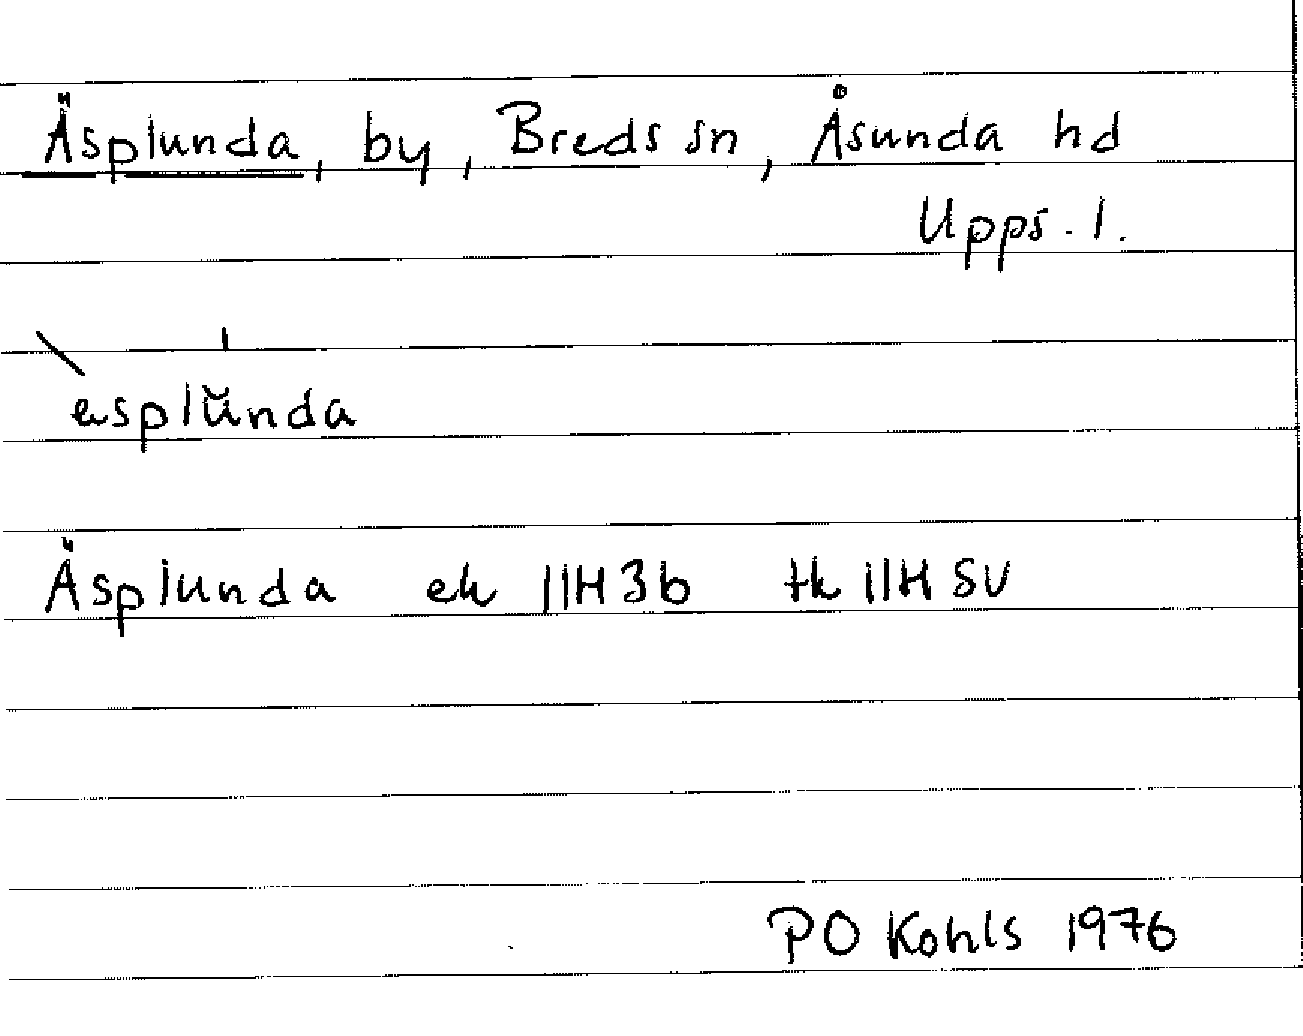 Äsplunda, by, Breds sn, Åsunda hd
Upps. l.
esplŭnda
Äsplunda ek 11H3b tk 11H SV
PO Kohls 1976